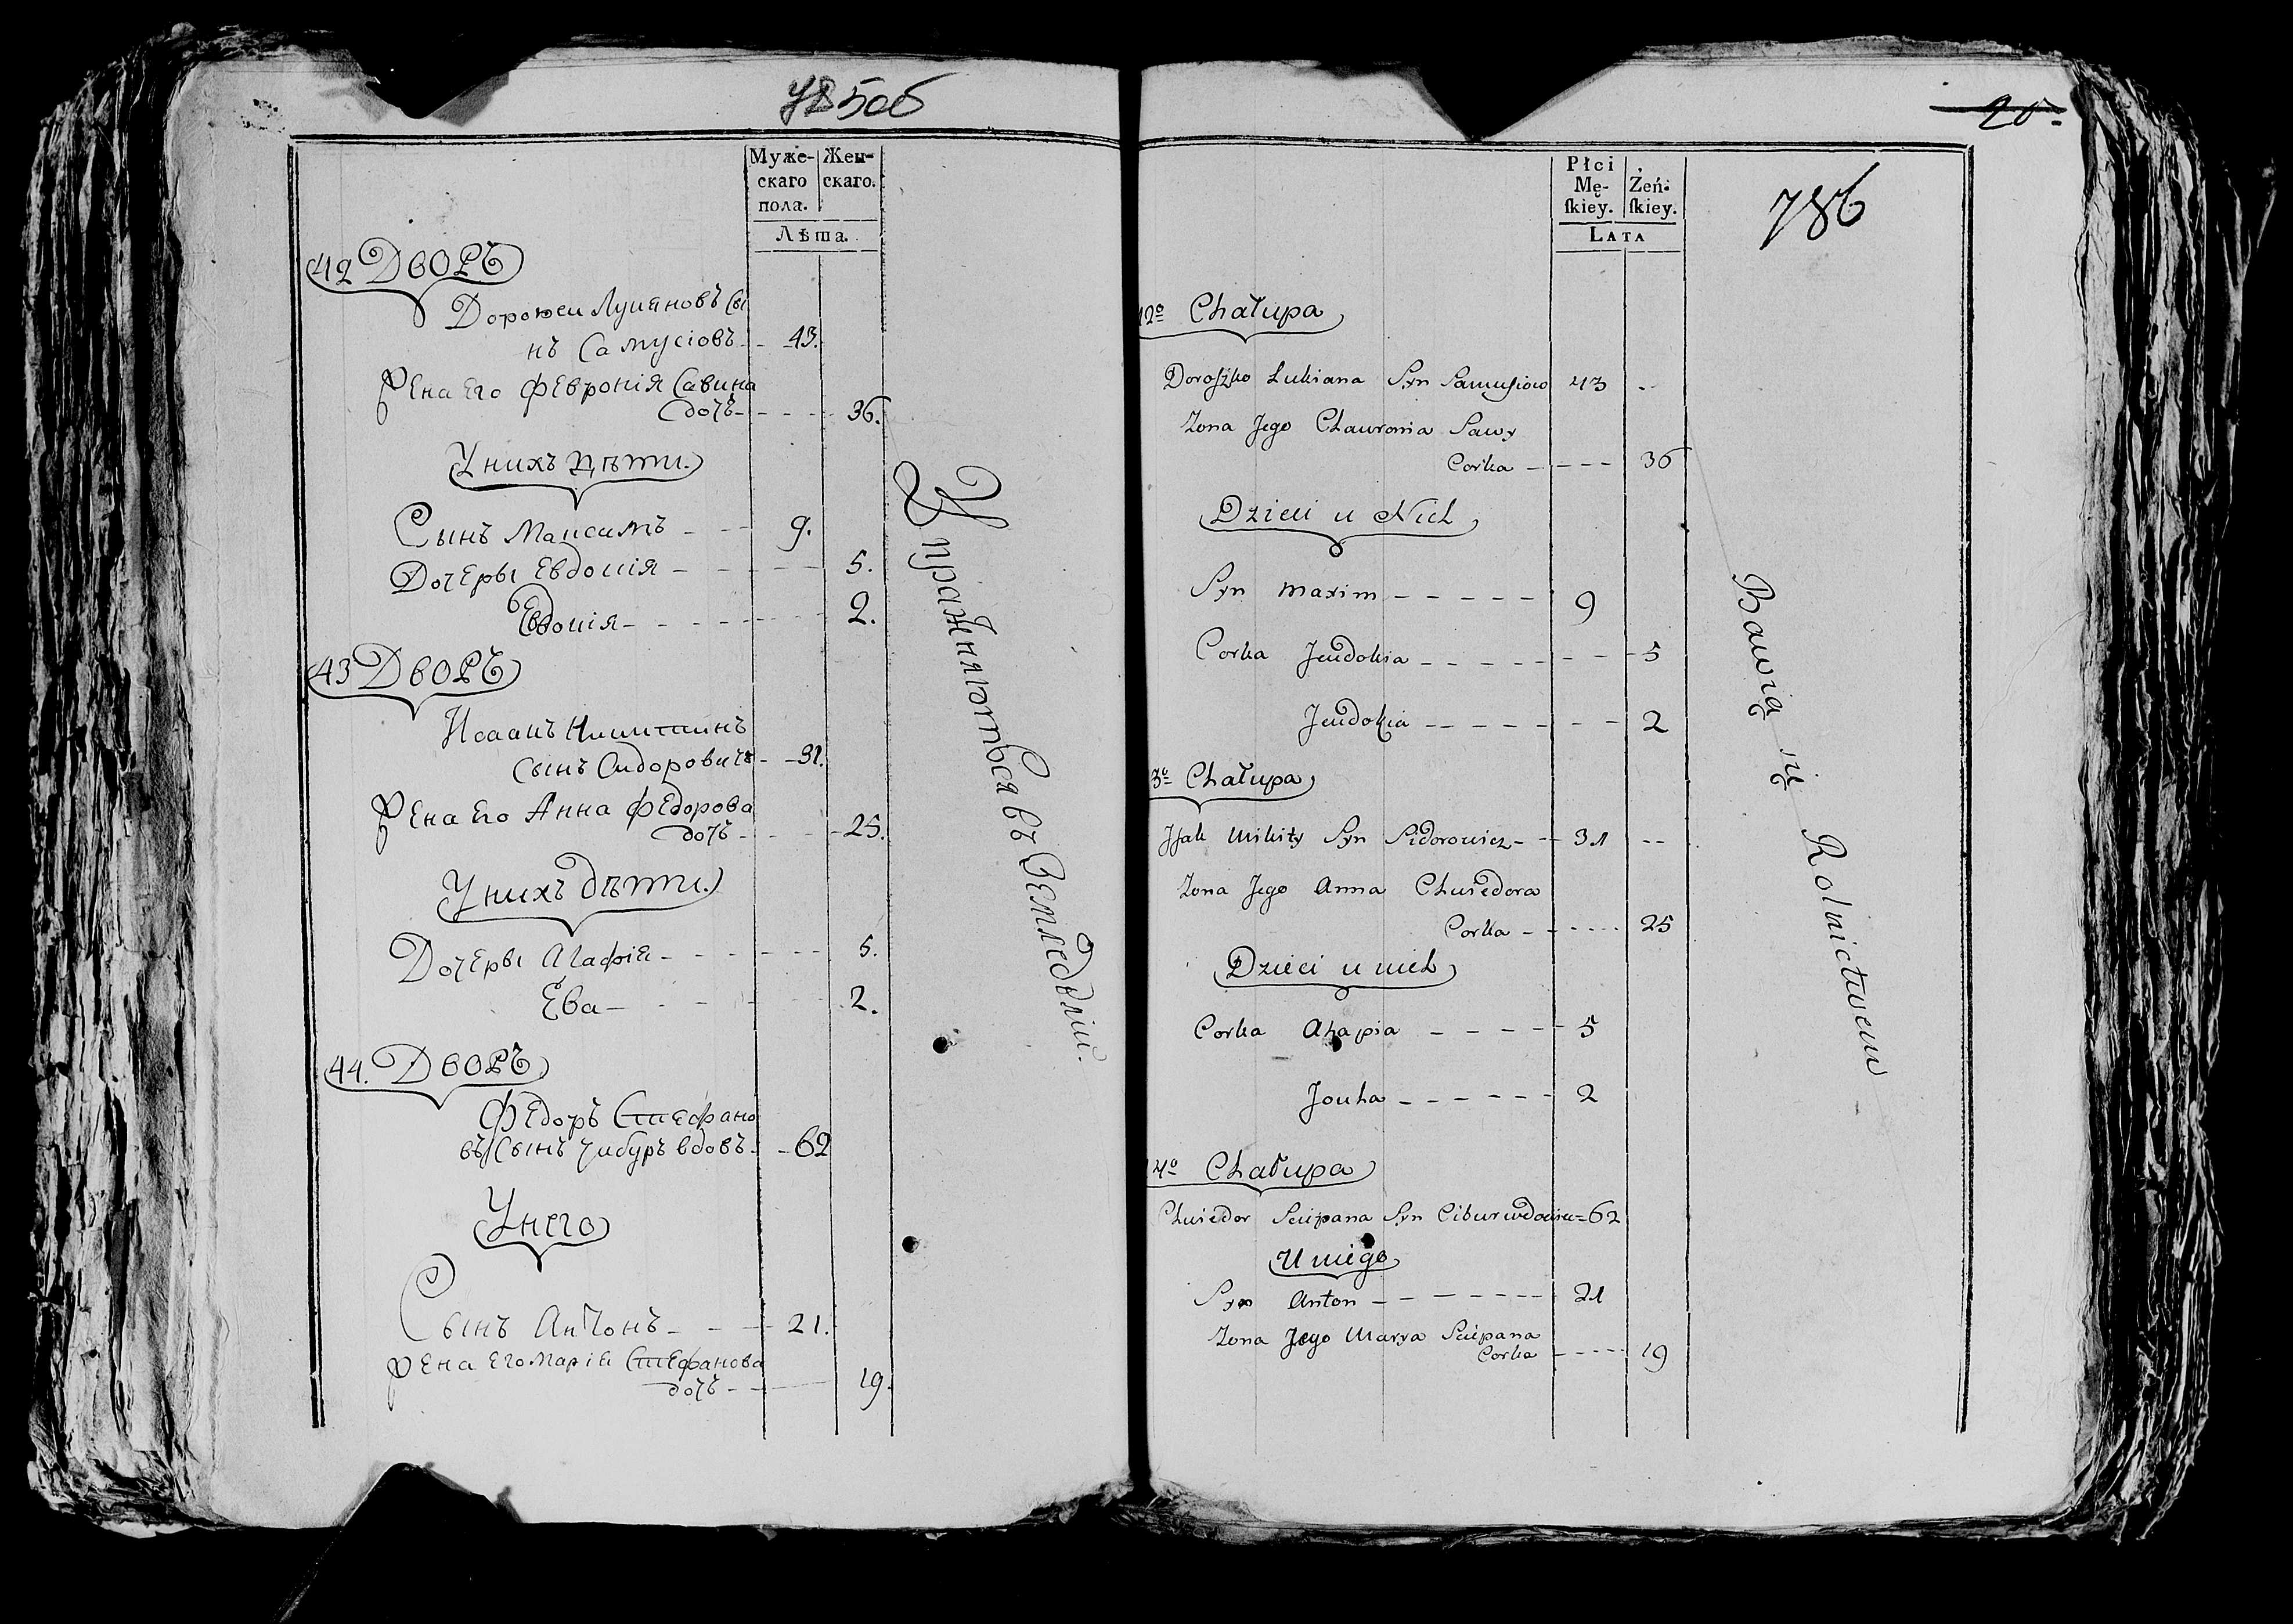 785об
Муже-
скаго
пола.
Жен-
скаго.
Лѣта.
42 Дворъ
Дорофеи Лукяновъ Сы
нъ Самусіовъ - - 43.
Жена Его Февронія Савина
дочь - - - - 36.
У нихъ дѣти.
Сынъ Максимъ - - - 9.
Дочеры Евдокія - - - - - 5.
Евдокія - - - - - - 2.
43 Дворъ
Исаакъ Никитинъ
сынъ Сидоровичъ - - 31.
Жена Его Анна Федорова
дочь - - - - 25.
У нихъ дѣти.
Дочеры Агафія - - - - - - 5.
Ева - - - - - 2.
44. Дворъ
Федоръ Стефано
въ Сынъ Цибуръ вдовъ - - 62
У него
Сынъ Антонъ - - - 21.
Жена Его Марія Стефанова
дочь - - - 19.
Упражняются въ Земледѣліи.
20.
786
Płci
Mę-
ſkiey.
Żeń-
ſkiey.
Lata
42º Chałupa
Doroszko Lukiana Syn Samusiow 43 - -
Zona Jego Chawronia Sawy
Corka - - - - 36
Dzieci u Nich
Syn Maxim - - - - - 9
Corka Jewdokia - - - - - - - 5
Jewdokia - - - - - - 2
3º Chałupa
Jsak Mikity Syn Sidorowicz - - 31 - -
Zona Jego Anna Chwiedora
Corka - - - - - 25
Dzieci u nich
Corka Ahapia - - - - - 5
Jouha - - - - - - 2
44º Chałupa
Chwiedor Sciepana Syn Cibur wdowiec = 62
U niego
Syn Anton - - - - - - - 21
Zona Jego Marya Sciepana
Corka - - - - 19
Bawią się Rolnictwem